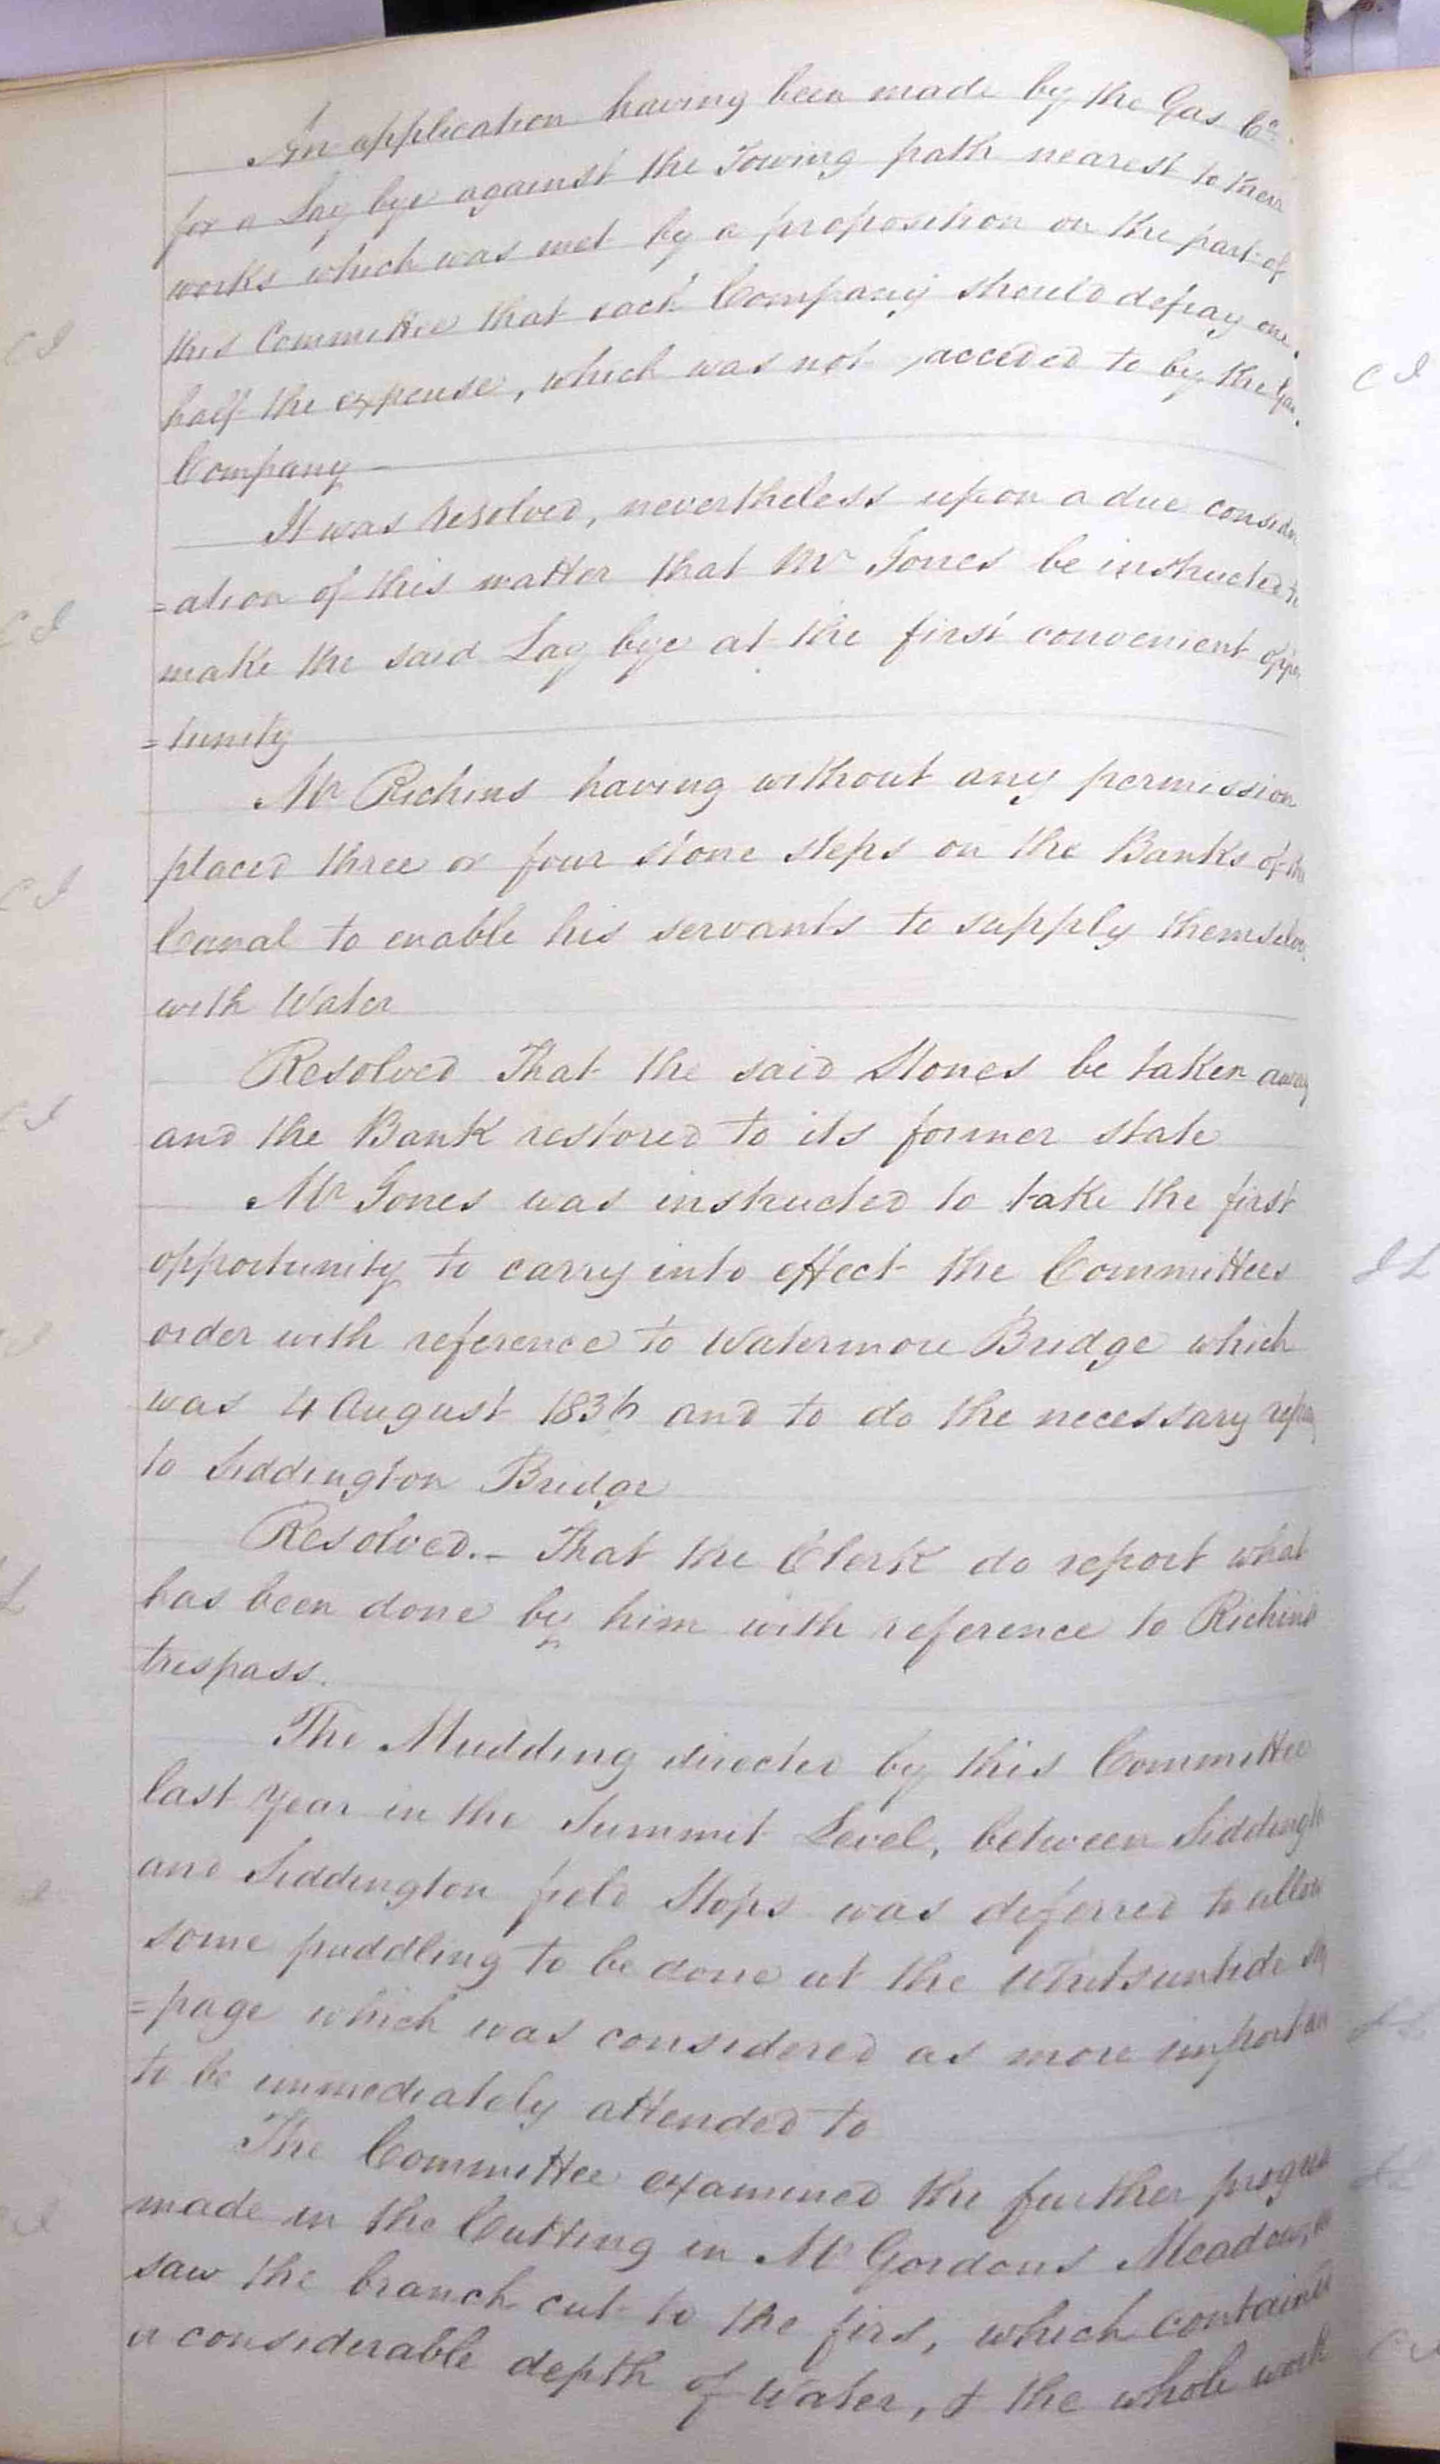 An application having been made by the Gas Co.
for a Lay bye against the Towing path nearest to their
works which was met by a proposition on the part of
this Committee that each Company should defray one
half the expense, which was not acceded to by the Gas
Company
It was resolved, nevertheless upon a due consider
=ation of this matter that Mr Jones be instructed to
make the said Lay bye at the first convenient oppor
=tunity
Mr Richins having without any permission
placed three or four stone steps on the Banks of the
Canal to enable his servants to supply themselves
with Water
Resolved That the said Stones be taken away
and the Bank restored to its former state
Mr Jones was instructed to take the first
opportunity to carry into effect the Committees
order with reference to Watermore Bridge which
was 4 August 1836 and to do the necessary
to Siddington Bridge
Resolved. - That the Clerk do report what
has been done by him with reference to Richins
trespass.
The Mudding directed by this Committee
last year in the Summit Level, between Siddington
and Siddington field Stops was deferred to allow
some puddling to be done at the Whitsuntide
=page which was considered as more important
to be immediately attended to
The Committee examined the further progress
made in the Cutting in Mr Gordons Meadow,
saw the branch cut to the firs, which contained
a considerable depth of Water, & the whole work
CI
CI
CI
CI
CI